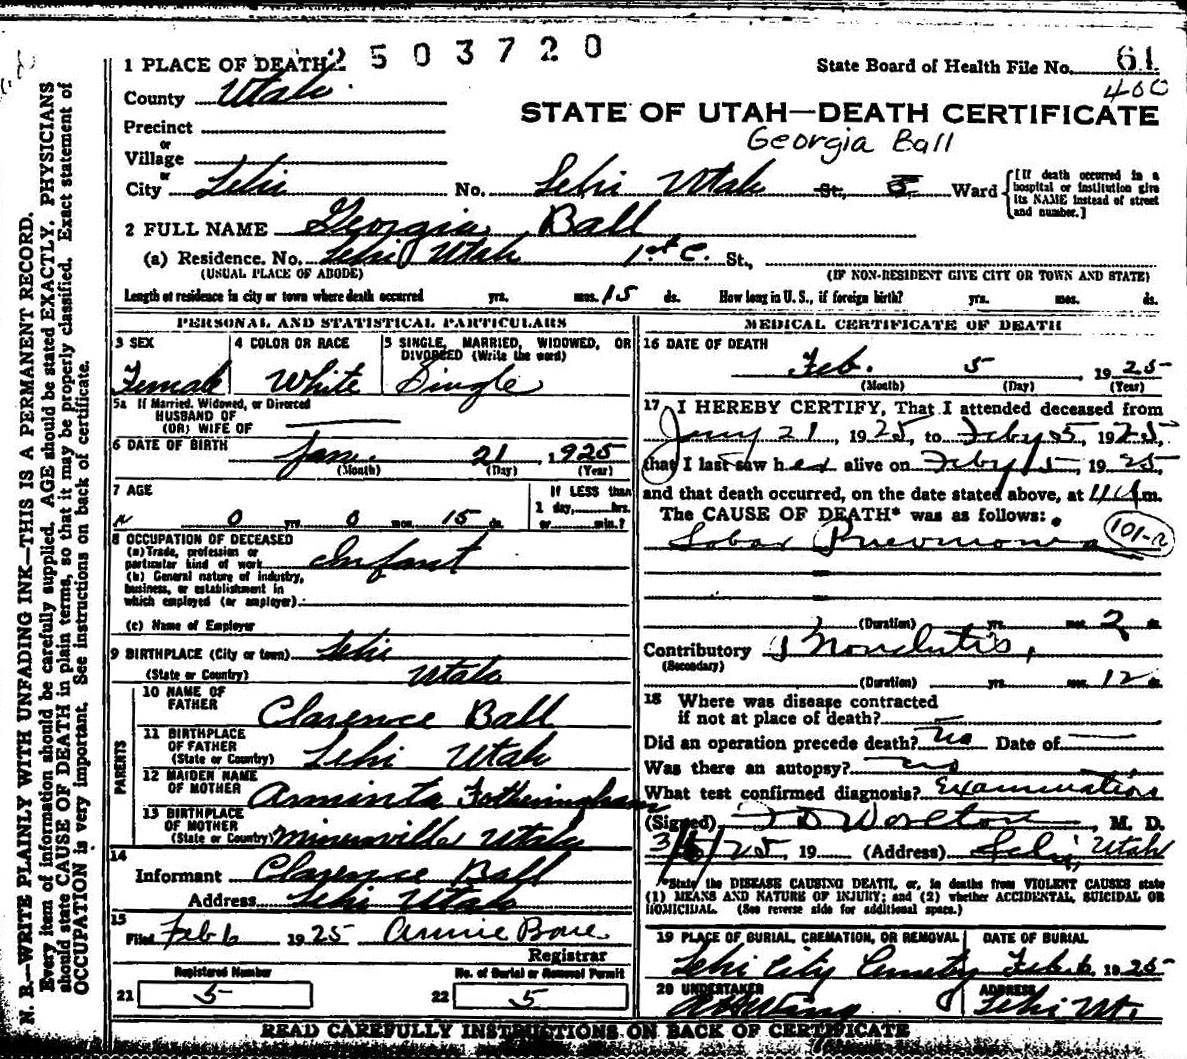 2503720
1 PLACE OF DEATH
State Board of Health File No. 61
400
County Utah
STATE OF UTAH—DEATH CERTIFICATE
Precinct
Georgia Ball
or
Village
or
City Lehi No. Lehi Utah St., Ward
[If death occurred in a hospital or institution give its NAME instead of street and number.]
2 FULL NAME Georgia Ball
(a) Residence. No. Lehi Utah 1st C. St.,
(USUAL PLACE OF ABODE) (IF NON-RESIDENT GIVE CITY OR TOWN AND STATE)
Length of residence in city or town where death occurred yrs. mos. 15 ds. How long in U. S., if foreign birth? yrs. mos. ds.
PERSONAL AND STATISTICAL PARTICULARS
3 SEX
Female
4 COLOR OR RACE
White
5 SINGLE, MARRIED, WIDOWED, OR DIVORCED (Write the word)
Single
5a If Married, Widowed, or Divorced
HUSBAND OF
(OR) WIFE OF
6 DATE OF BIRTH Jan. 21 1925
(Month) (Day) (Year)
7 AGE
0 yrs. 0 mos. 15 ds.
If LESS than
1 day, hrs.
or min.?
8 OCCUPATION OF DECEASED
(a) Trade, profession or
particular kind of work Infant
(b) General nature of industry,
business, or establishment in
which employed (or employer)
(c) Name of Employer
9 BIRTHPLACE (City or town) Lehi
(State or Country) Utah
PARENTS
10 NAME OF
FATHER Clarence Ball
11 BIRTHPLACE
OF FATHER
(State or Country) Lehi Utah
12 MAIDEN NAME
OF MOTHER Arminta Fotheringham
13 BIRTHPLACE
OF MOTHER
(State or Country) Minersville Utah
14
Informant Clarence Ball
Address Lehi Utah
15
Filed Feb 6 1925 Annie Bone
Registrar
Registered Number No. of Burial or Removal Permit
21 5 22 5
MEDICAL CERTIFICATE OF DEATH
16 DATE OF DEATH
Feb. 5 1925
(Month) (Day) (Year)
17 I HEREBY CERTIFY, That I attended deceased from
Jany 21, 1925, to Feby 5, 1925,
that I last saw her alive on Feby 5, 1925,
and that death occurred, on the date stated above, at m.
The CAUSE OF DEATH* was as follows:
Lobar Pneumonia
(Duration) yrs. mos. 2 ds.
Contributory Bronchitis,
(Secondary)
(Duration) yrs. mos. 12 ds.
18 Where was disease contracted
if not at place of death?
Did an operation precede death? no Date of
Was there an autopsy? no
What test confirmed diagnosis? Examination
(Signed) Worlton, M. D.
25, 19 (Address) Lehi, Utah
*State the DISEASE CAUSING DEATH, or, in deaths from VIOLENT CAUSES state
(1) MEANS AND NATURE OF INJURY; and (2) whether ACCIDENTAL, SUICIDAL OR
HOMICIDAL. (See reverse side for additional space.)
19 PLACE OF BURIAL, CREMATION, OR REMOVAL DATE OF BURIAL
Lehi City Cemetery Feb. 6 1925
20 UNDERTAKER ADDRESS
Wing Lehi Ut.
READ CAREFULLY INSTRUCTIONS ON BACK OF CERTIFICATE
N. B.—WRITE PLAINLY WITH UNFADING INK—THIS IS A PERMANENT RECORD.
Every item of information should be carefully supplied. AGE should be stated EXACTLY. PHYSICIANS
should state CAUSE OF DEATH in plain terms, so that it may be properly classified. Exact statement of
OCCUPATION is very important. See instructions on back of certificate.